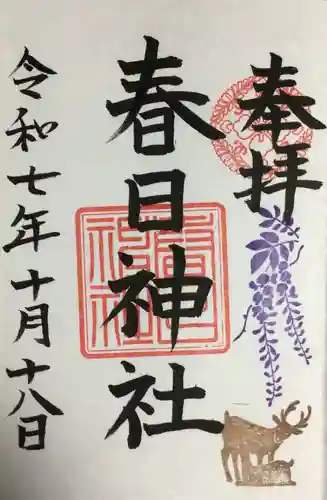 奉拝
春日神社
令和七年十月十八日